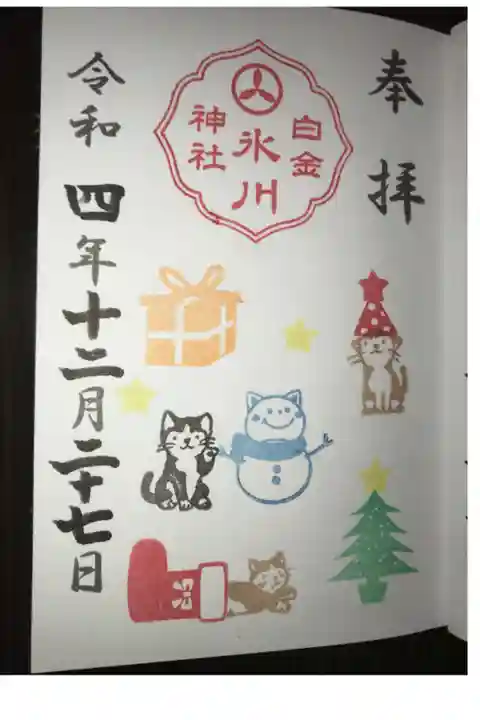 奉拝
白金
氷川
神社
令和四年十二月二十七日